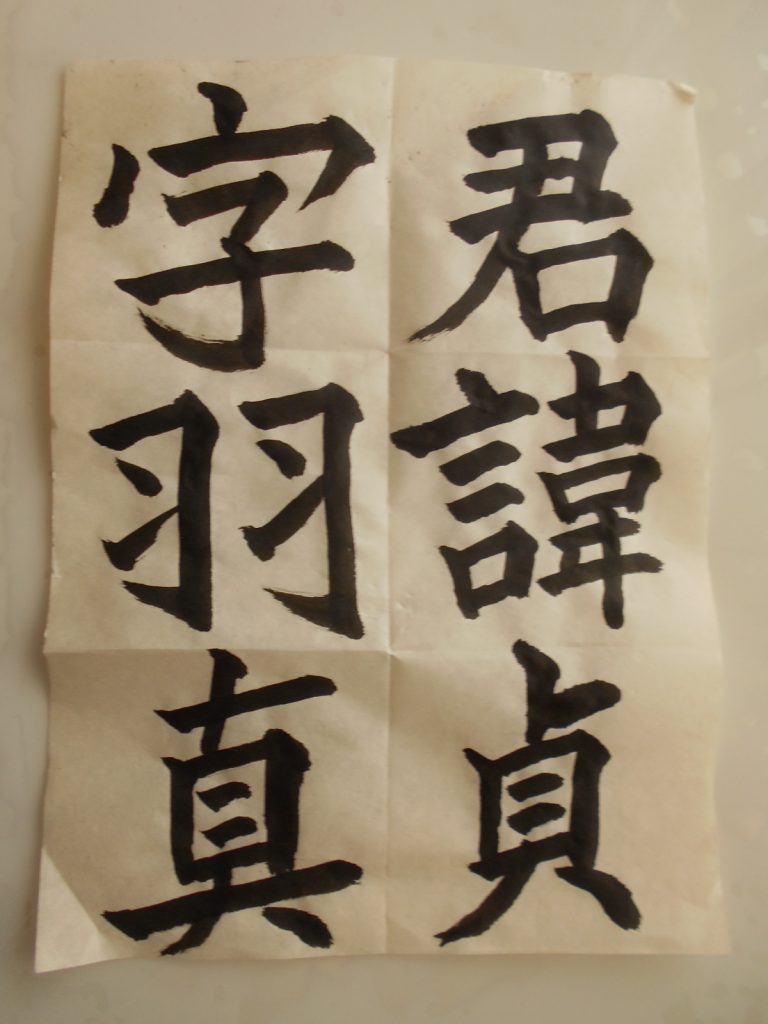 君諱貞
字羽真